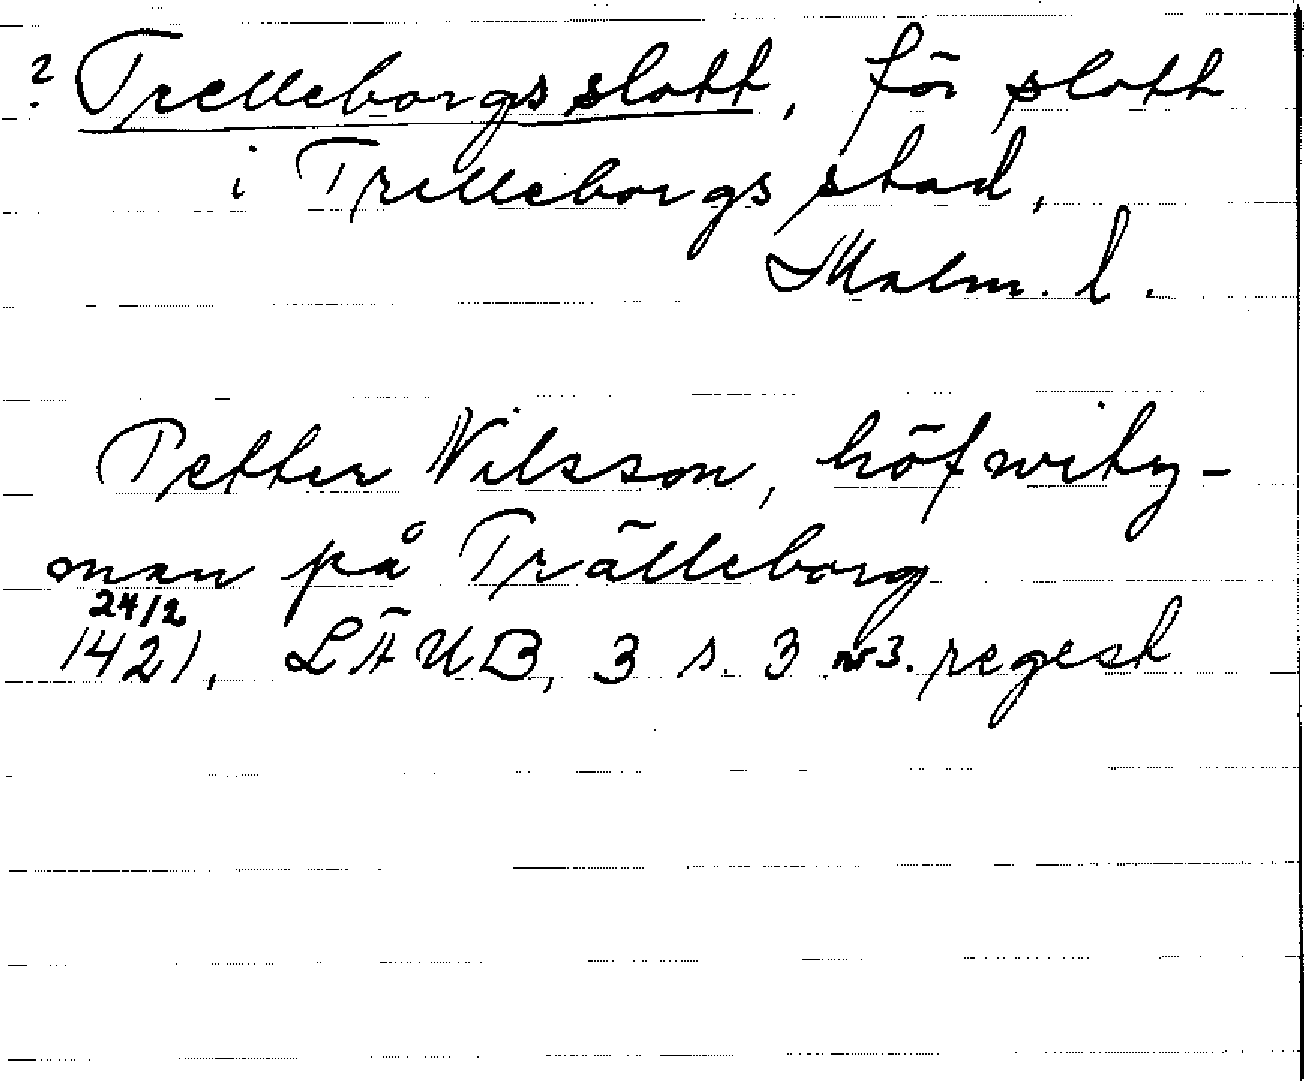 ? Trelleborgs slott, för slott
i Trelleborgs stad,
Malm. l.
Petter Nilsson, höfwitz-
man på Trälleborg
24/2
1421, LÄUB, 3 s. 3 nr 3. regest